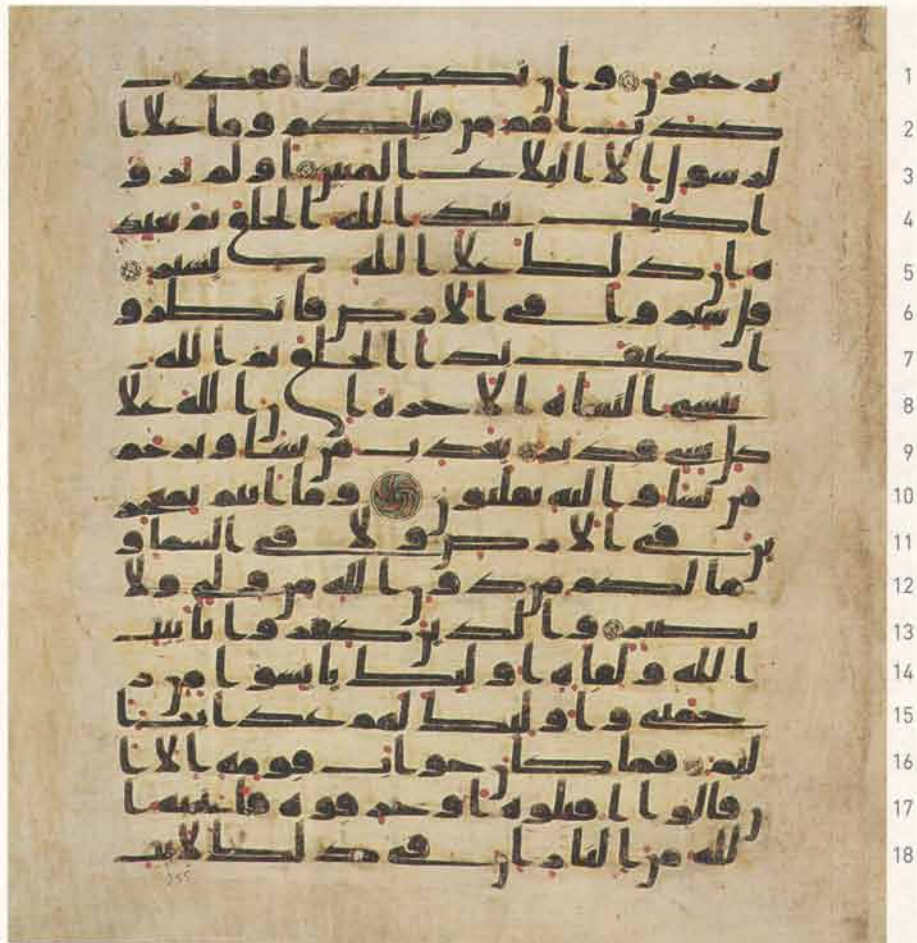 ترجعون وان تكذبوا فقد 1
كذب امم من قبلكم وما على ا 2
لرسول الا البلاغ المبين اولم يرو 3
ا كيف يبدئ الله الخلق ثم يعيد 4
ه ان ذلك على الله يسير 5
قل سيروا في الارض فانظرو 6
ا كيف بدا الخلق ثم الله 7
ينشئ النشاة الاخرة ان الله على 8
كل شيء قدير يعذب من يشا ويرحم 9
من يشا واليه تقلبون وما انتم بمعجز 10
ين في الارض ولا في السما و 11
ما لكم من دون الله من ولي ولا 12
نصير والذين كفروا بايت 13
الله ولقائه اولئك يئسوا من ر 14
حمتي واولئك لهم عذاب ا 15
ليم فما كان جواب قومه الا ا 16
ن قالوا اقتلوه او حرقوه فانجيه ا 17
لله من النار ان في ذلك لايت 18